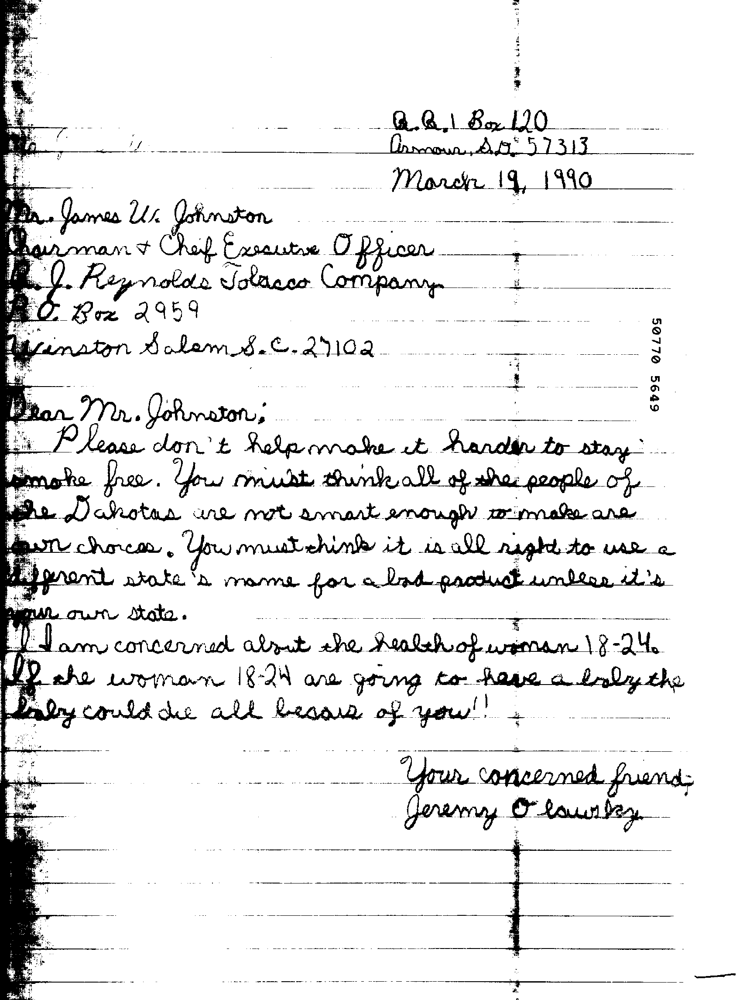 R.R.1 Box 120
Armour, S.D. 57313
March 19, 1990
Mr. James W. Johnston
Chairman + Cheif Executve Officer
R. J. Reynolds Tobacco Company
P.O. Box 2959
Winston Salem S.C. 27102
50770 5649
Dear Mr. Johnston;
Please don't help make it harder to stay
smoke free. You must think all of the people of
the Dakotas are not smart enough to make are
own choices. You must think it is all right to use a
different state's name for a bad product unless it's
your own state.
I am concerned about the health of woman 18-24.
If the woman 18-24 are going to have a baby the
baby could die all besaus of you!!
Your concerned friend;
Jeremy